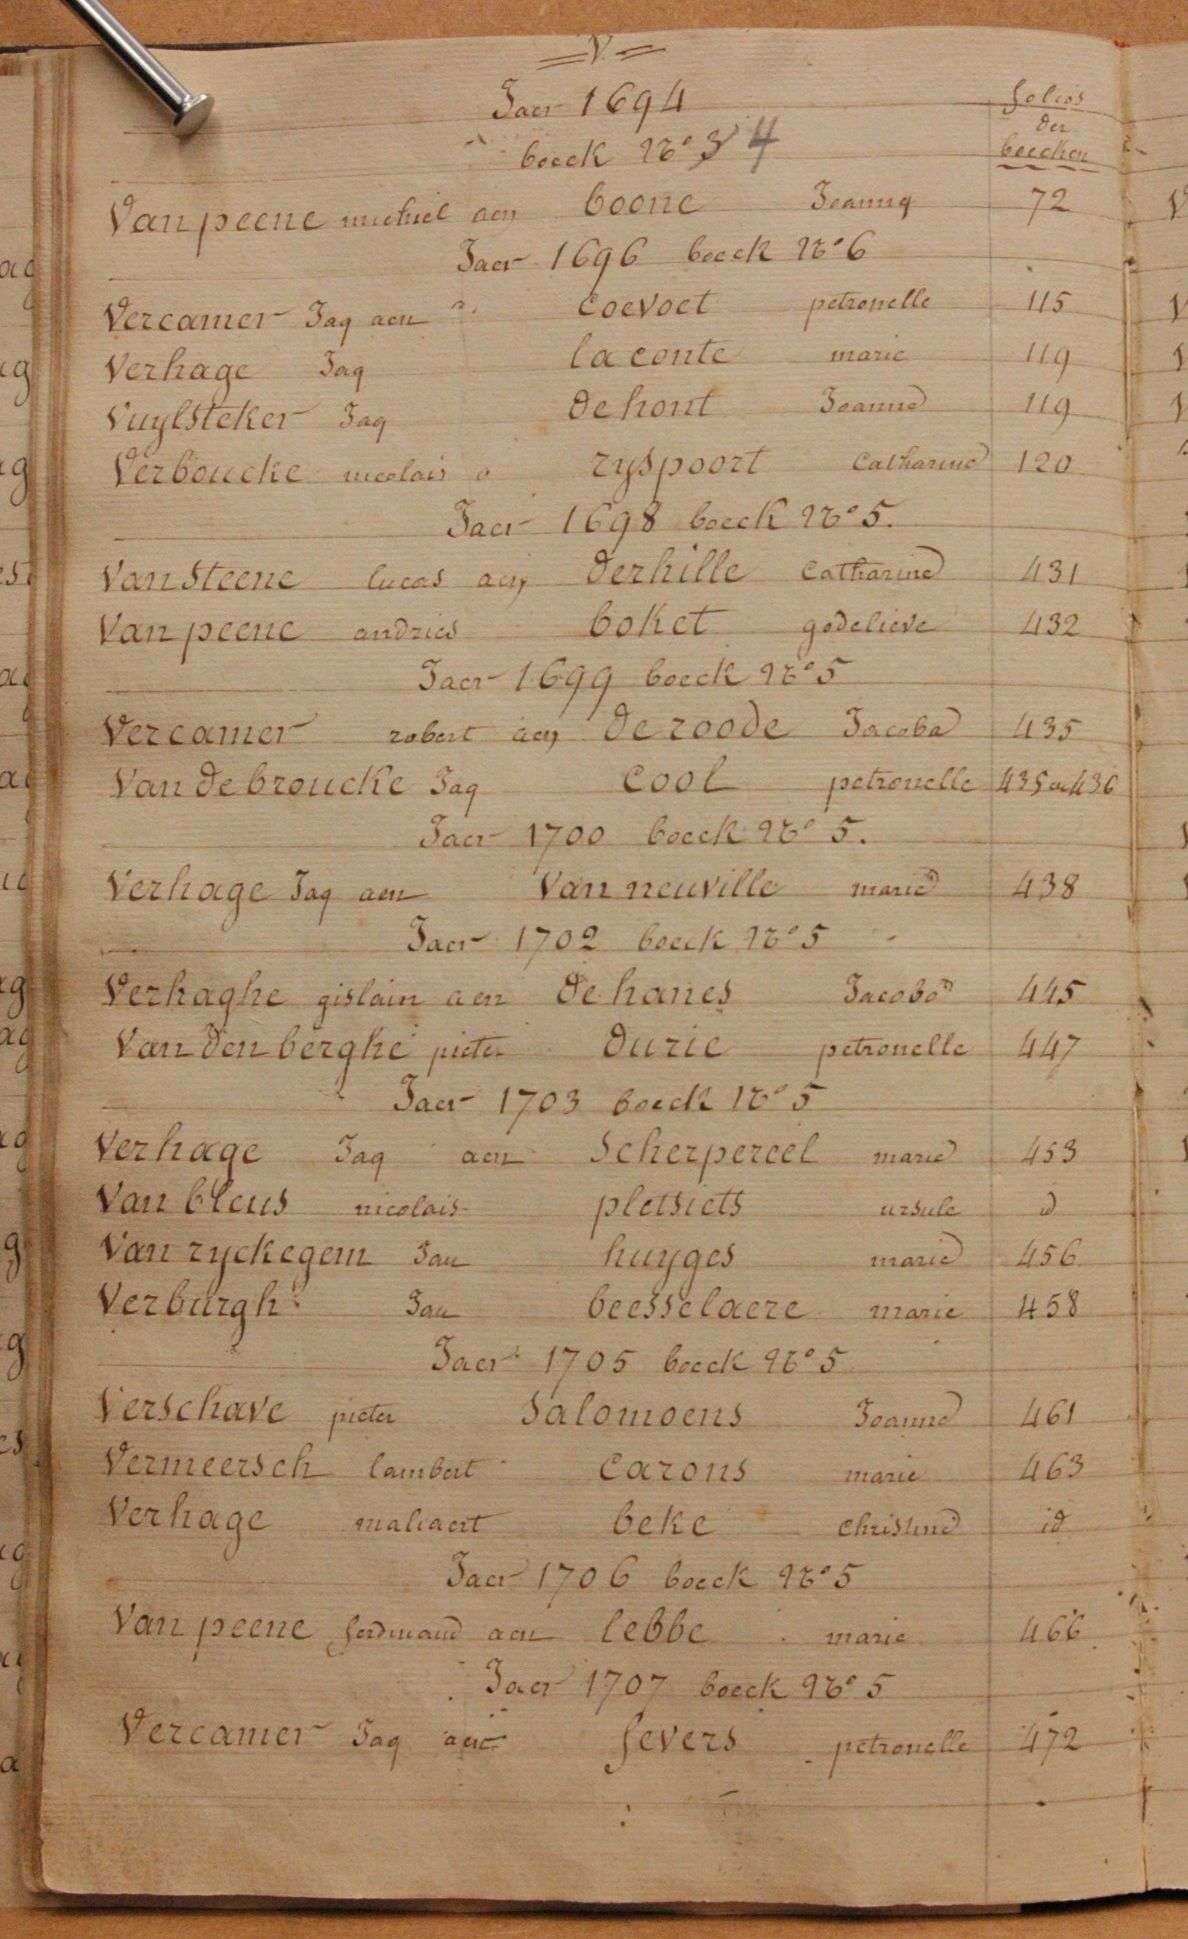 V
Jaer 1694
folios
der
boecken
boeck No 3 4
Van peene michiel aen boone Joanna 72
Jaer 1696 boeck No 6
Vercamer Jaq aen coevoet petronelle 115
Verhage Jaq la conte marie 119
Vuylsteker Jaq de hont Joanne 119
Verboucke nicolais ryspoort Catharine 120
Jaer 1698 boeck No 5.
Van Steene lucas aen derhille Catharine 431
Van peene andries boket godelieve 432
Jaer 1699 boeck No 5
Vercamer robert aen de roode Jacoba 435
Van de broucke Jaq cool petronelle 435 en 436
Jaer 1700 boeck No 5.
Verhage Jaq aen Van neuville marie 438
Jaer 1702 boeck No 5
Verhaghe gislain aen de hanes Jacoba 445
Van den berghe pieter durie petronelle 447
Jaer 1703 boeck No 5
Verhage Jaq aen Scherpereel marie 453
Van bleus nicolais pletsiets ursule id
Van ryckegem Jan huyges marie 456
Verburgh Jan beesselaere marie 458
Jaer 1705 boeck No 5
Verschave pieter Salomoens Joanne 461
Vermeersch lambert carons marie 463
Verhage maliaert beke christine id
Jaer 1706 boeck No 5
Van peene ferdinand aen lebbe marie 466
Jaer 1707 boeck No 5
Vercamer Jaq aen fevers petronelle 472